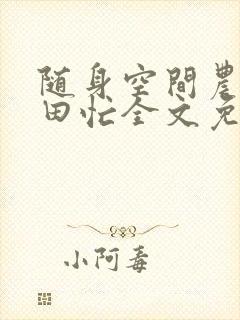 随身空間農
田忙全文免
小阿毒